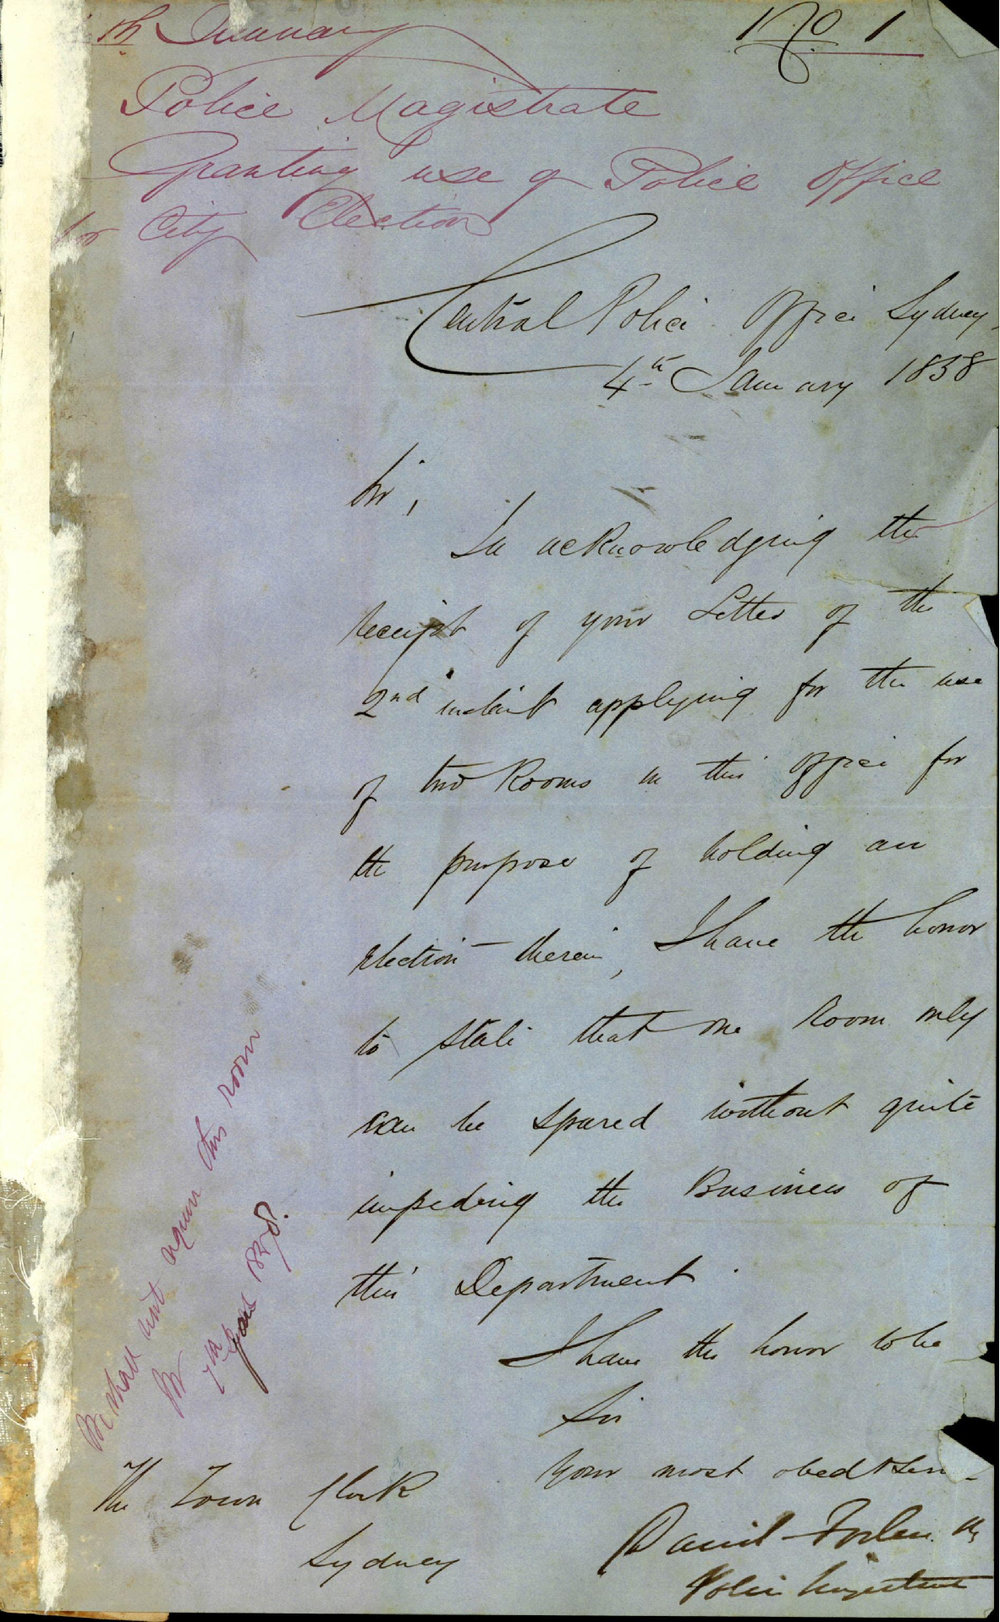 th January
No 1
Police Magistrate
Granting use of Police Office
for City Election
Central Police Office Sydney,
4th January 1858
Sir,
In acknowledging the
receipt of your Letter of the
2nd instant applying for the use
of two Rooms in this Office for
the purpose of holding an
election therein, I have the honor
to state that one Room only
can be spared without quite
impeding the Business of
this Department.
I have the honor to be
Sir
Your most obedt Serv
David
Police
The Town Clerk
Sydney
We shall not require this room
7th Jany 1858.